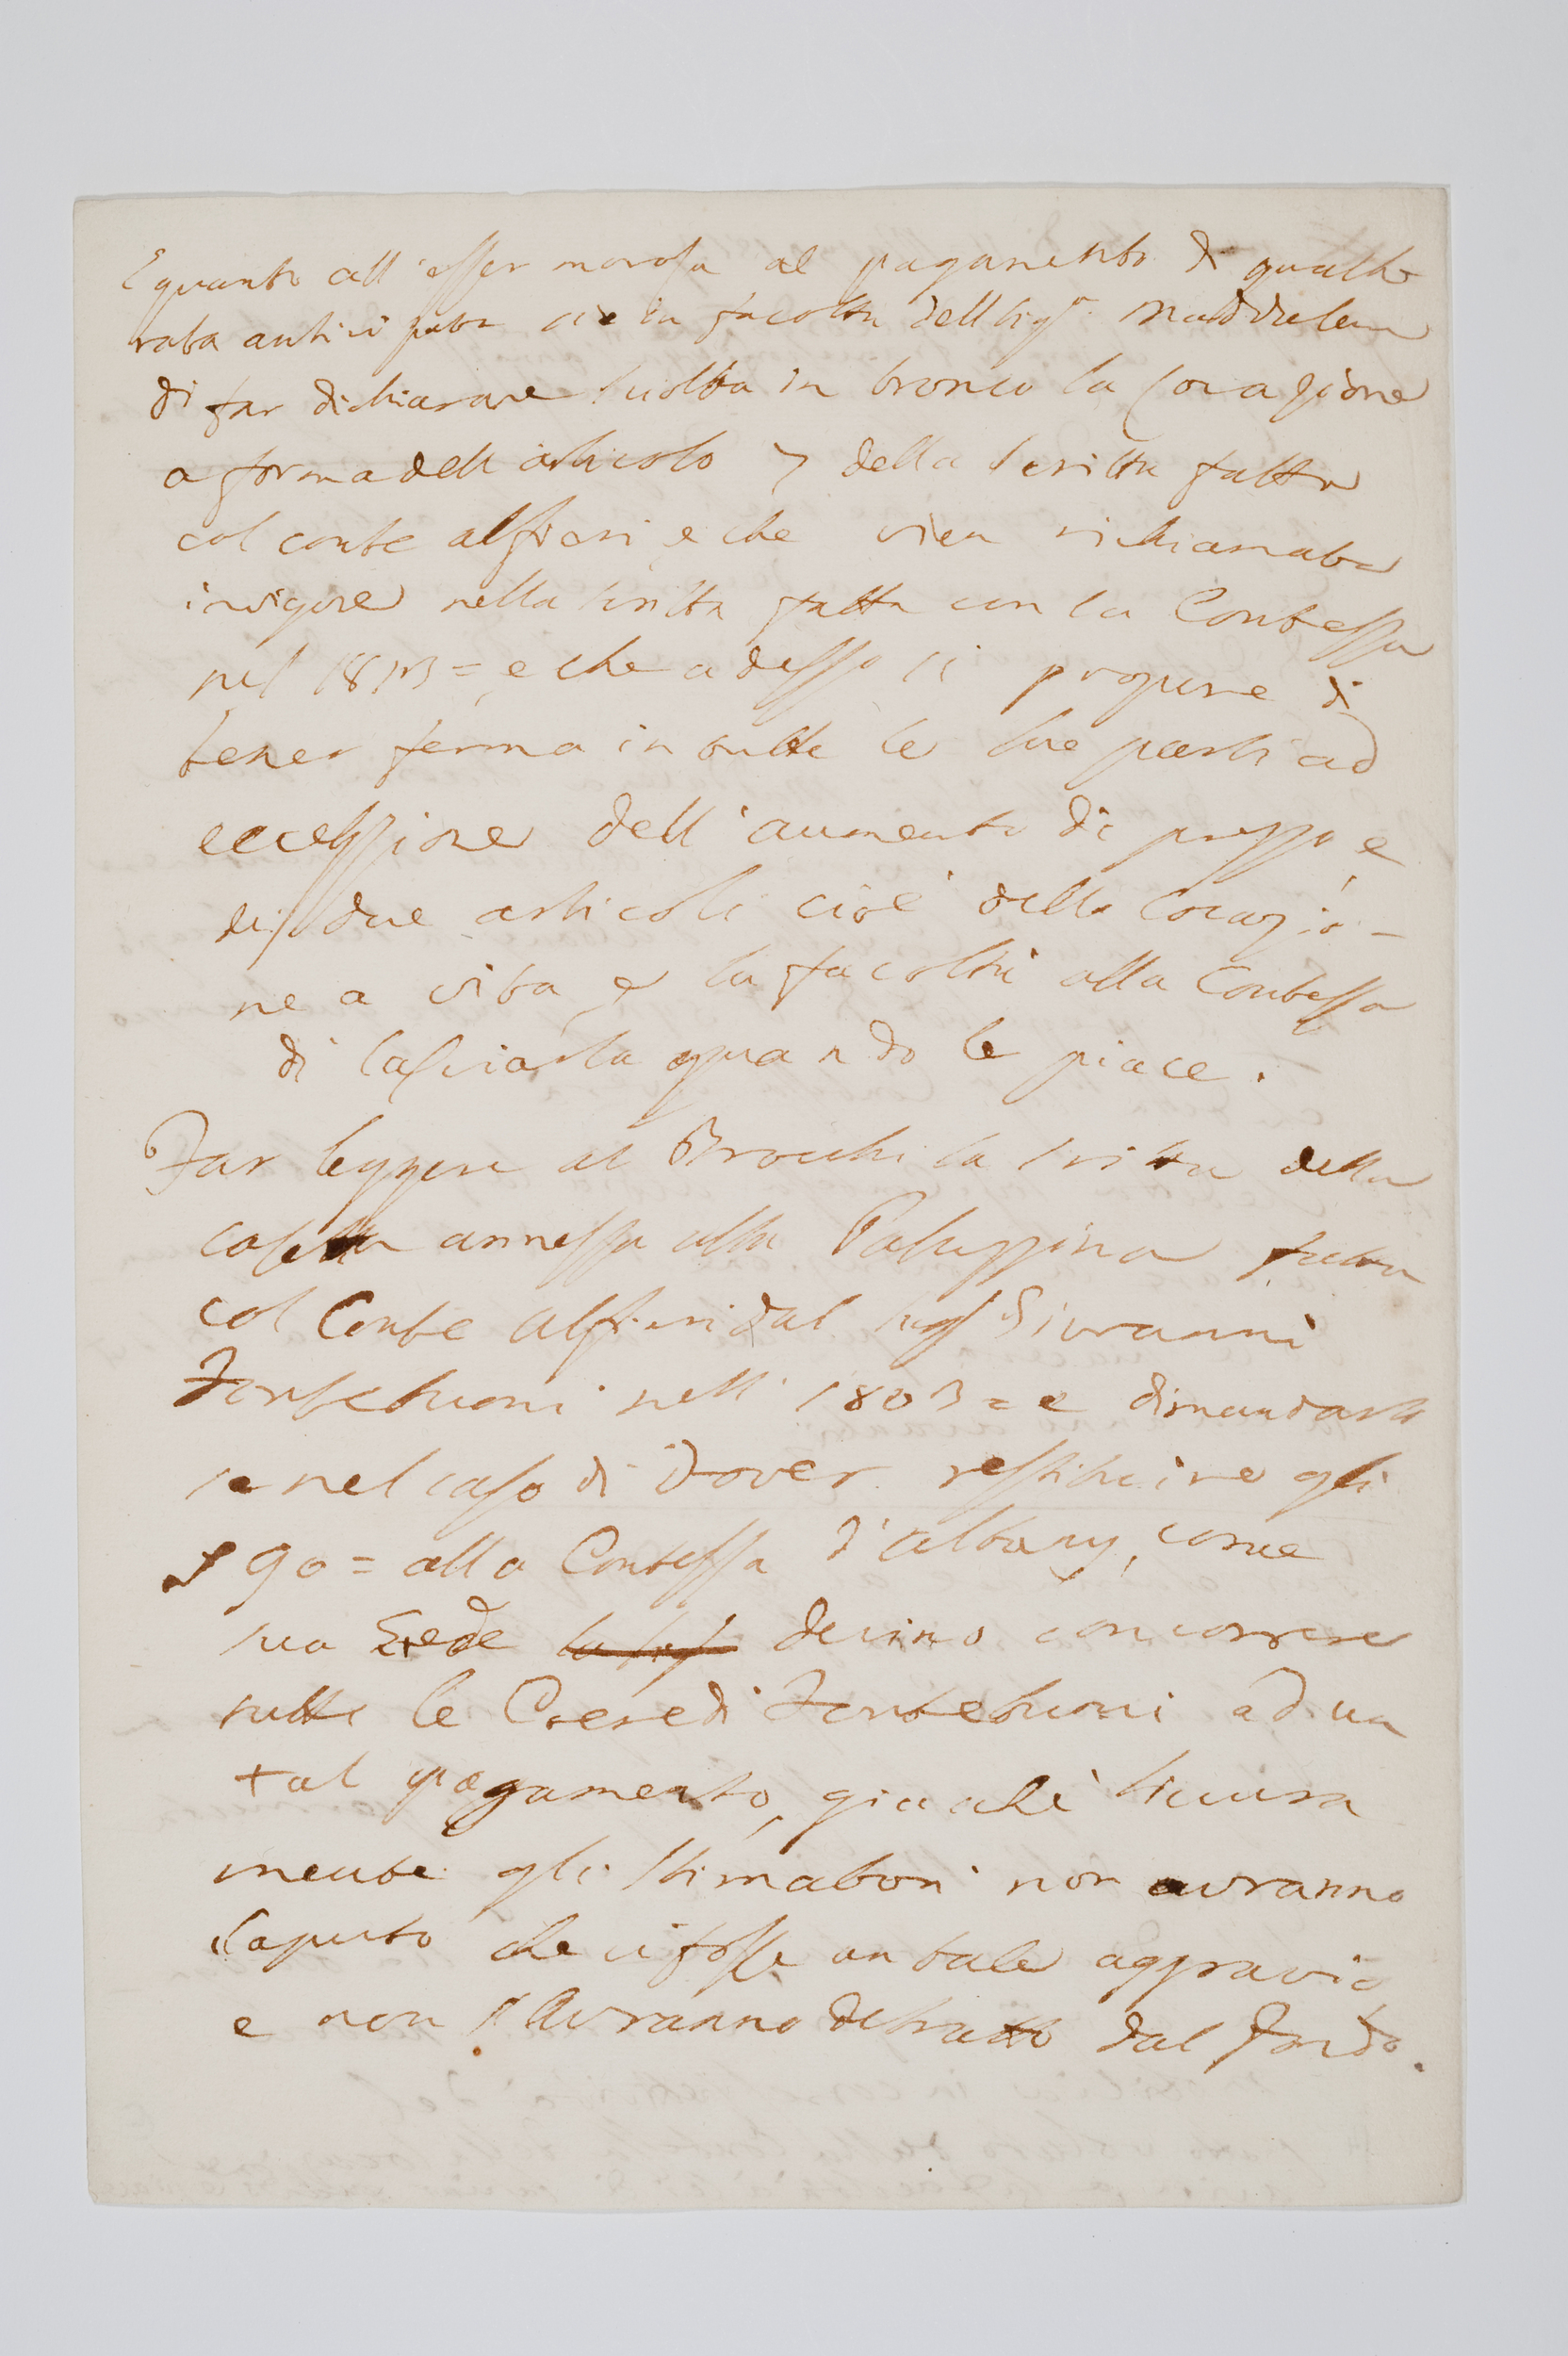 E quanto all'esser morosa al pagamento di qualche
rata anticipata vi è la facoltà della Sig.ra Maddalena
di far dichiarare sciolta in tronco la Locazione
a forma dell articolo 7 della Scritta fatta
col conte alfieri e che vien richiamata
in vigore nella scritta fatta con la Contessa
nel 1813 = e che adesso si propone di
tener ferma in tutte le sue parti ad
eccessione dell'aumento di prezzo e
di due articoli cioè della Locazio-
ne a vita e la facoltà alla Contessa
di lasciarla quando le piace.
Far leggere al Brocchi la scritta della
casetta annessa alla Paluzzina fatta
col Conte alfieri dal Giovanni
Fontebuoni nell' 1803 = e dimandarli
se nel caso di Dover restituire gli
90 = alla Contessa d'albany, come
sua Erede devino concorrere
tutte le Coeredi Fontebuoni ad un
tal pagamento, giacchè sicura
mente gli stimatori non avranno
saputo che ci fosse un tale aggravio
e non l'avranno detratto dal fondo.